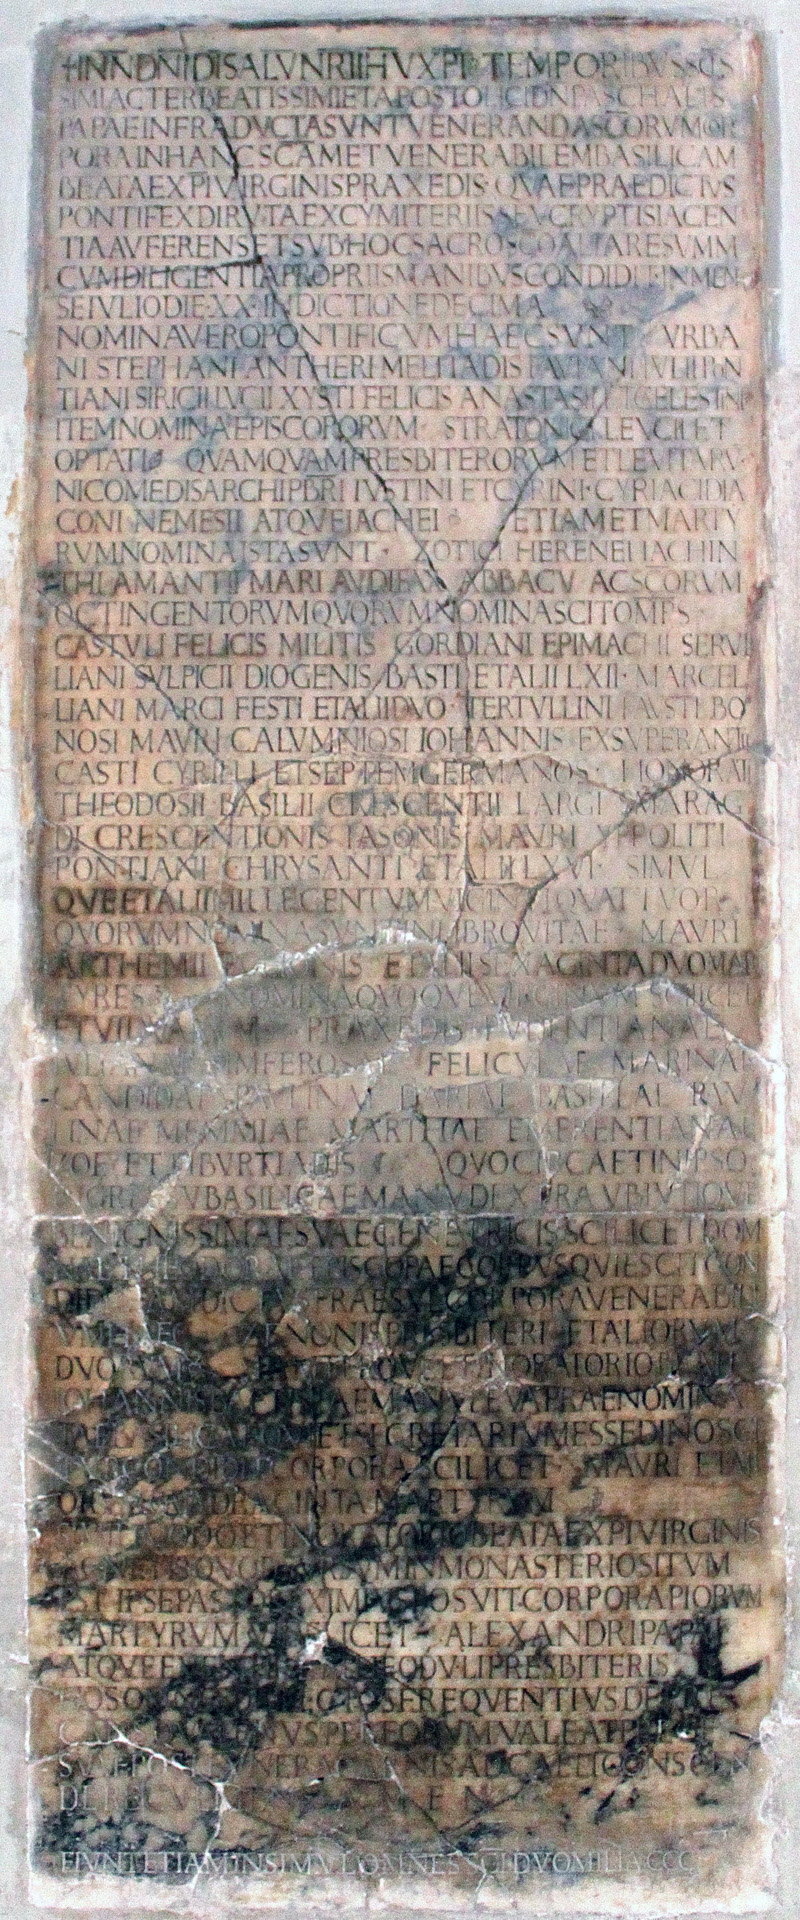 + INNDNIDISALVNRIIHVXPI TEMPORIBVSSCIS
SIMIACTERBEATISSIMIETAPOSTOLICIDNPASCHALIS
PAPAEINFRADVCTASVNTVENERANDASCORVMCOR
PORAINHANCSCAMETVENERABILEMBASILICAM
BEATAEXPIVIRGINISPRAXEDIS·QVAEPRAEDICTVS
PONTIFEXDIRVTAEXCYMITERIISSEVCRYPTISIACEN
TIAAVFERENSETSVBHOCSACROSCOALTARESVMM
CVMDILIGENTIAPROPRIISMANIBVSCONDIDIT·INMEN
SEIVLIODIE·XX·INDICTIONEDECIMA
NOMINAVEROPONTIFICVMHAECSVNT VRBA
NI STEPHANI ANTHERI MELTIADIS FAVIANI IVLII PON
TIANI SIRICII LVCII XYSTI FELICIS ANASTASII ETCELESTINI
ITEMNOMINAEPISCOPORVM STRATONICI LEVCII ET
OPTATI QVAMQVAMPRESBITERORVM ETLEVITARV·
NICOMEDISARCHIPBRI IVSTINI ETCYRINI·CYRIACIDIA
CONI NEMESII ATQVEIACHEI ETIAMETMARTY
RVMNOMINAISTASVNT· ZOTICI HERENEI IACHIN
THI AMANTII MARI AVDIFAX ABBACV ACSCORVM
OCTINGENTORVMQVORVMNOMINASCITOMPS
CASTVLI FELICIS MILITIS GORDIANI EPIMACHII SERVI
LIANI SVLPICII DIOGENIS BASTI ETALII LXII· MARCEL
LIANI MARCI FESTI ETALIIDVO· TERTVLLINI FAVSTI BO
NOSI MAVRI CALVMNIOSI IOHANNIS EXSVPERANTII
CASTI CYRILLI ETSEPTEMGERMANOS· HONORATI
THEODOSII BASILII CRESCENTII LARGI SMARAG
DI CRESCENTIONIS IASONIS MAVRI YPPOLITI
PONTIANI CHRYSANTI ETALII LXVI· SIMVL
QVEETALIIMILLECENTVMVIGINTIQVATTVOR·
QVORVMNOMINASVNTINLIBROVITAE MAVRI
ARTHEMII POLIONIS ETALIISEXAGINTADVOMAR
TYRES NOMINAQVOQVEVIRGINVMSCILICET
ETVIDVARVM· PRAXEDIS PVDENTIANAE
IVLIANAE SIMFEROSAE FELICVLAE MARINAE
CANDIDAE PAVLINAE DARIAE BASILLAE PAV
LINAE MEMMIAE MARTHAE EMERENTIANAE
ZOE ET TIBVRTIADIS QVOCIRCAETINIPSO
INGRESSVBASILICAEMANVDEXTRAVBIVTIQVE
BENIGNISSIMAESVAEGENETRICISSCILICETDOM
NAETHEODORAEEPISCOPAECORPVSQVIESCITCON
DIDIT DICTVSPRAESVLCORPORAVENERABILI
VMHAEC ZENONISPRESBITERI ETALIORVM
DVORVM PARITERQVEETINORATORIOBEATI
IOHANNISBAPTISTAEMANVLEVAPRAENOMINA
TAEBASILICAEQVODETSECRETARIVMESSEDINOSCI
CORPORASCILICET· MAVRI ETALI
ORVMQVADRAGINTAMARTYRVM
ETINORATORIOBEATAEXPIVIRGINIS
AGNETISQVODSVRSVMINMONASTERIOSITVM
EST IPSEPASTOREXIMIVSPOSVITCORPORAPIORVM
MARTYRVMVIDELICET ALEXANDRIPAPAE
ATQVEEVENTIIETTHEODVLIPRESBITERIS
HOSOMNES FREQVENTIVSDE
PREEORVMVALEAT
SVAEPOST CAELICONSCEN
DERE AMEN
FIVNTETIAMINSIMVLOMNESSCIDVOMILIACCC